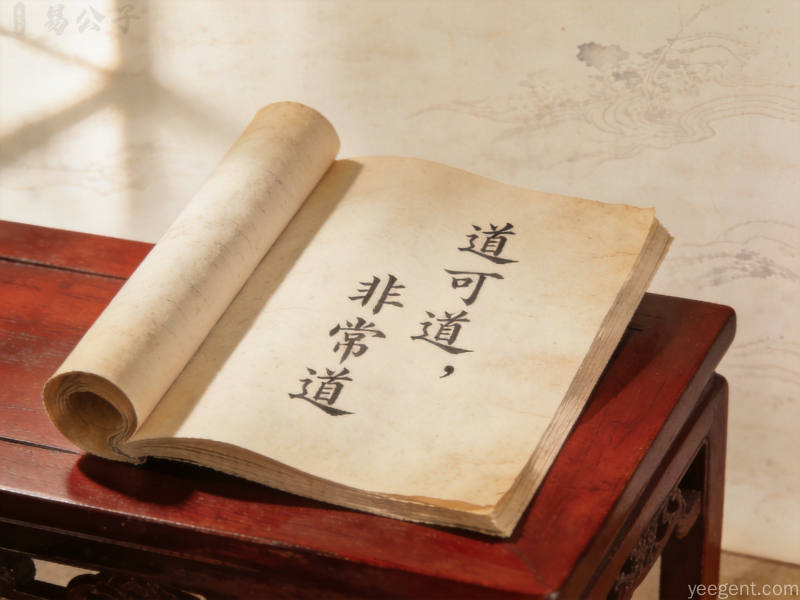 道可道，
非常道
易公子
yeegent.com